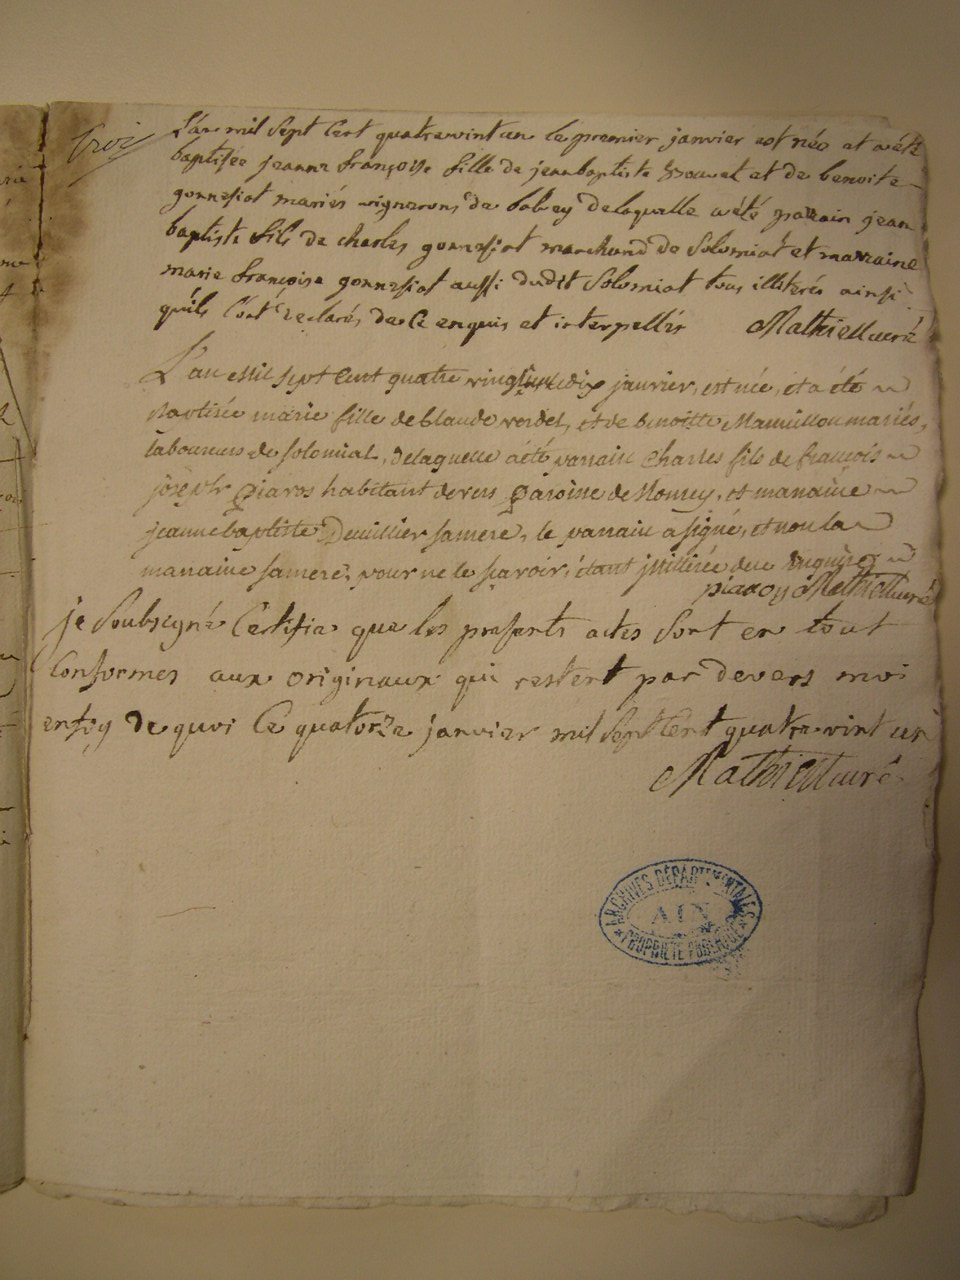 trois
L'an mil sept cent quatrevint un le premier janvier est née et a été
baptisée jeanne françoise fille de jean baptiste et de benoite
gonnessiat mariés vignerons de de laquelle a été parain jean
baptiste fils de charles gonnessiat marchand de Solomiat et maraine
marie françoise gonnessiat aussi dudit Solomiat tous illiterés ainsi
qu'ils l'ont declarés de ce enquis et interpellés Mathieu curé
L'an mil sept cent quatre vingt un le dix janvier, est née, et a été
baptisée marie fille de Claude verdet, et de benoitte mariés,
laboureurs de solomiat, de laquelle a été parain Charles fils de françois
joseph habitant de vers paroisse de et maraine
jeanne baptiste sa mere, le parain a signé, et non la
maraine sa mere, pour ne le sçavoir, étant illiterée de ce enquise
Mathieu curé
je soubsigné Certifie que les presents actes sont en tout
Conformes aux originaux qui restent par devers moi
en foy de quoi Ce quatorze janvier mil Sept Cent quatre vint un
Mathieu curé
ARCHIVES DÉPARTEMENTALES
AIN
PROPRIÉTÉ PUBLIQUE